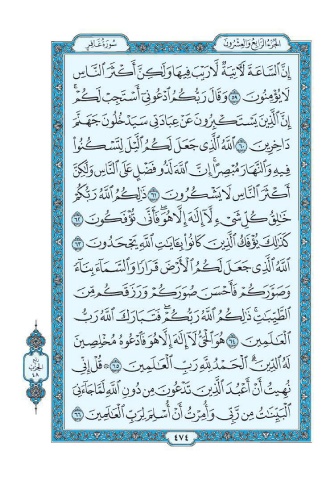 الجزء الرابع والعشرون
سورة غافر
إِنَّ ٱلسَّاعَةَ لَأٓتِيَةٞ لَّا رَيۡبَ فِيهَا وَلَٰكِنَّ أَكۡثَرَ ٱلنَّاسِ
لَا يُؤۡمِنُونَ ٥٩ وَقَالَ رَبُّكُمُ ٱدۡعُونِيٓ أَسۡتَجِبۡ لَكُمۡۚ
إِنَّ ٱلَّذِينَ يَسۡتَكۡبِرُونَ عَنۡ عِبَادَتِي سَيَدۡخُلُونَ جَهَنَّمَ
دَاخِرِينَ ٦٠ ٱللَّهُ ٱلَّذِي جَعَلَ لَكُمُ ٱلَّيۡلَ لِتَسۡكُنُواْ
فِيهِ وَٱلنَّهَارَ مُبۡصِرًاۚ إِنَّ ٱللَّهَ لَذُو فَضۡلٍ عَلَى ٱلنَّاسِ وَلَٰكِنَّ
أَكۡثَرَ ٱلنَّاسِ لَا يَشۡكُرُونَ ٦١ ذَٰلِكُمُ ٱللَّهُ رَبُّكُمۡ
خَٰلِقُ كُلِّ شَيۡءٖ لَّآ إِلَٰهَ إِلَّا هُوَۖ فَأَنَّىٰ تُؤۡفَكُونَ ٦٢
كَذَٰلِكَ يُؤۡفَكُ ٱلَّذِينَ كَانُواْ بِـَٔايَٰتِ ٱللَّهِ يَجۡحَدُونَ ٦٣
ٱللَّهُ ٱلَّذِي جَعَلَ لَكُمُ ٱلۡأَرۡضَ قَرَارٗا وَٱلسَّمَآءَ بِنَآءٗ
وَصَوَّرَكُمۡ فَأَحۡسَنَ صُوَرَكُمۡ وَرَزَقَكُم مِّنَ
ٱلطَّيِّبَٰتِۚ ذَٰلِكُمُ ٱللَّهُ رَبُّكُمۡۖ فَتَبَارَكَ ٱللَّهُ رَبُّ
ٱلۡعَٰلَمِينَ ٦٤ هُوَ ٱلۡحَيُّ لَآ إِلَٰهَ إِلَّا هُوَ فَٱدۡعُوهُ مُخۡلِصِينَ
لَهُ ٱلدِّينَۗ ٱلۡحَمۡدُ لِلَّهِ رَبِّ ٱلۡعَٰلَمِينَ ٦٥ ۞ قُلۡ إِنِّي
نُهِيتُ أَنۡ أَعۡبُدَ ٱلَّذِينَ تَدۡعُونَ مِن دُونِ ٱللَّهِ لَمَّا جَآءَنِيَ
ٱلۡبَيِّنَٰتُ مِن رَّبِّي وَأُمِرۡتُ أَنۡ أُسۡلِمَ لِرَبِّ ٱلۡعَٰلَمِينَ ٦٦
ربع
الحزب
٤٨
٤٧٤